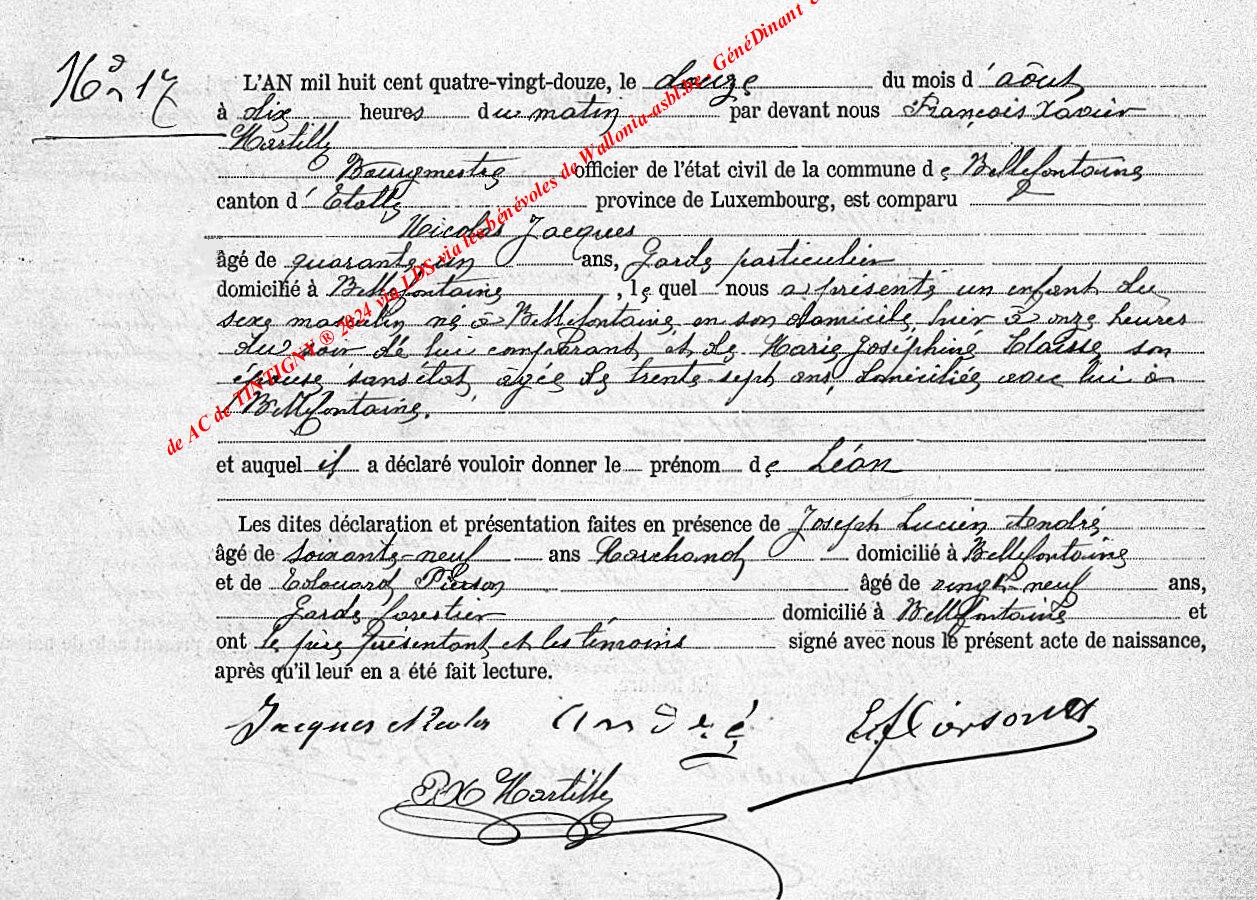 No 17
L'AN mil huit cent quatre-vingt-douze, le douze du mois d'août
à dix heures du matin par devant nous François Xavier
Martilly
Bourgmestre officier de l'état civil de la commune de Bellefontaine
canton d'Etalle province de Luxembourg, est comparu
Nicolas Jacques
âgé de quarante un ans, Garde particulier
domicilié à Bellefontaine, lequel nous a présenté un enfant du
sexe masculin né à Bellefontaine, en son domicile, hier à onze heures
du soir de lui comparant et de Marie Joséphine Claisse son
épouse, sans état, âgée de trente sept ans, domiciliée avec lui à
Bellefontaine.
et auquel il a déclaré vouloir donner le prénom de Léon
Les dites déclaration et présentation faites en présence de Joseph Lucien André
âgé de soixante-neuf ans Marchand domicilié à Bellefontaine
et de Edouard Pierson âgé de vingt-neuf ans,
Garde forestier domicilié à Bellefontaine et
ont le père présentant et les témoins signé avec nous le présent acte de naissance,
après qu'il leur en a été fait lecture.
Jacques Nicolas André E. Pierson
FX Martilly
de AC de TINTIGNY ® 2024 via LDS via les bénévoles de Wallonia-asbl.be, GénéDinant